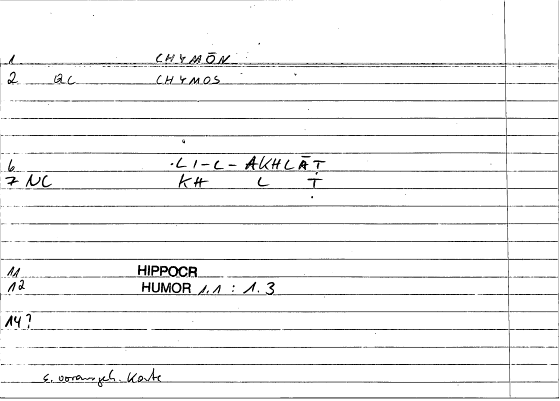 1 CHYMŌN
2 QC CHYMOS
6 LI-L-AKHLĀṬ
7 NC KH L Ṭ
11 HIPPOCR
12 HUMOR 1.1 : 1.3
14?
s. vorangeh. Karte